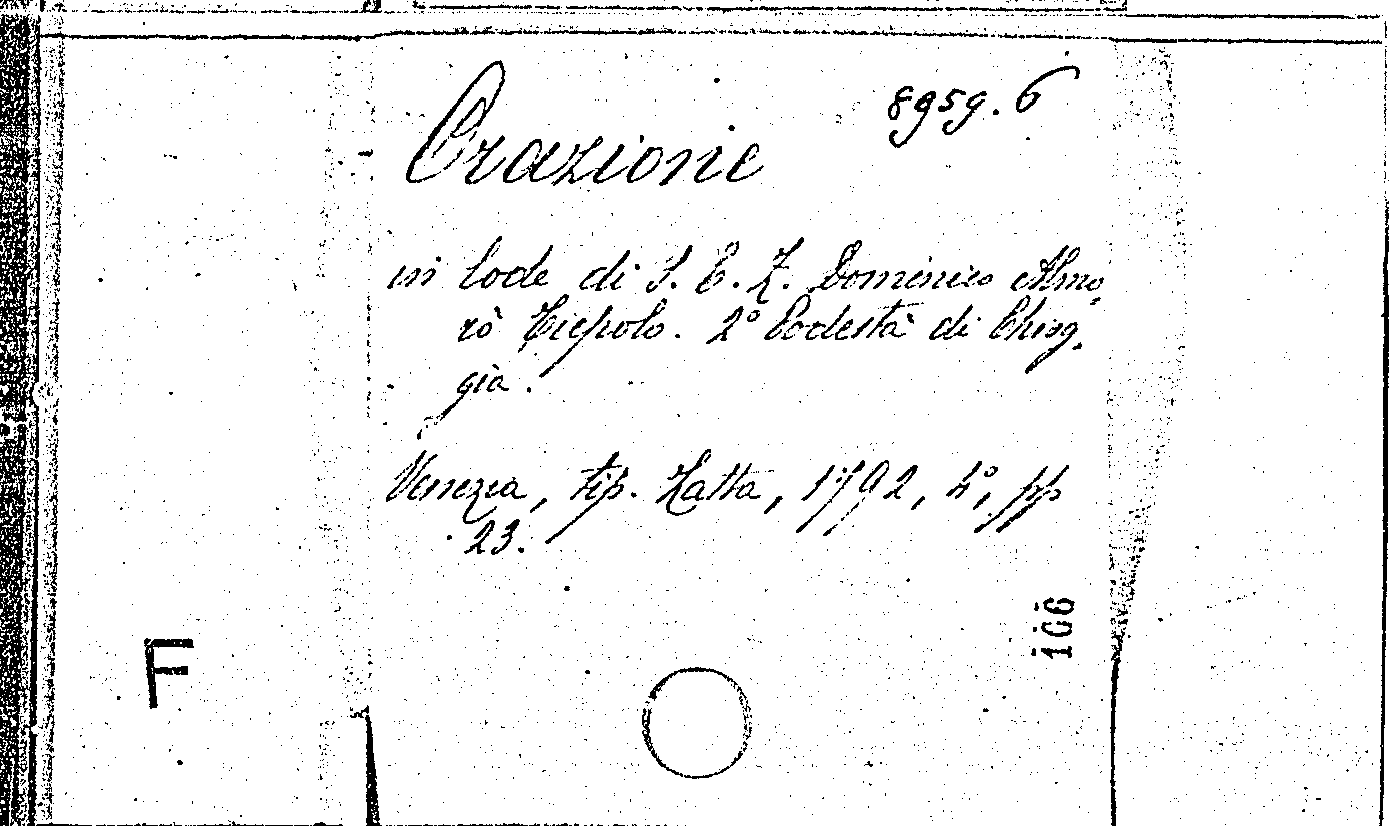 8959.6
Orazione
in lode di S. E. Z. Domenico Almo-
rò Tiepolo. 2° Podestà di Chiog-
gia.
Venezia, tip. Zatta, 1792, 4°, pp
23.
106
F